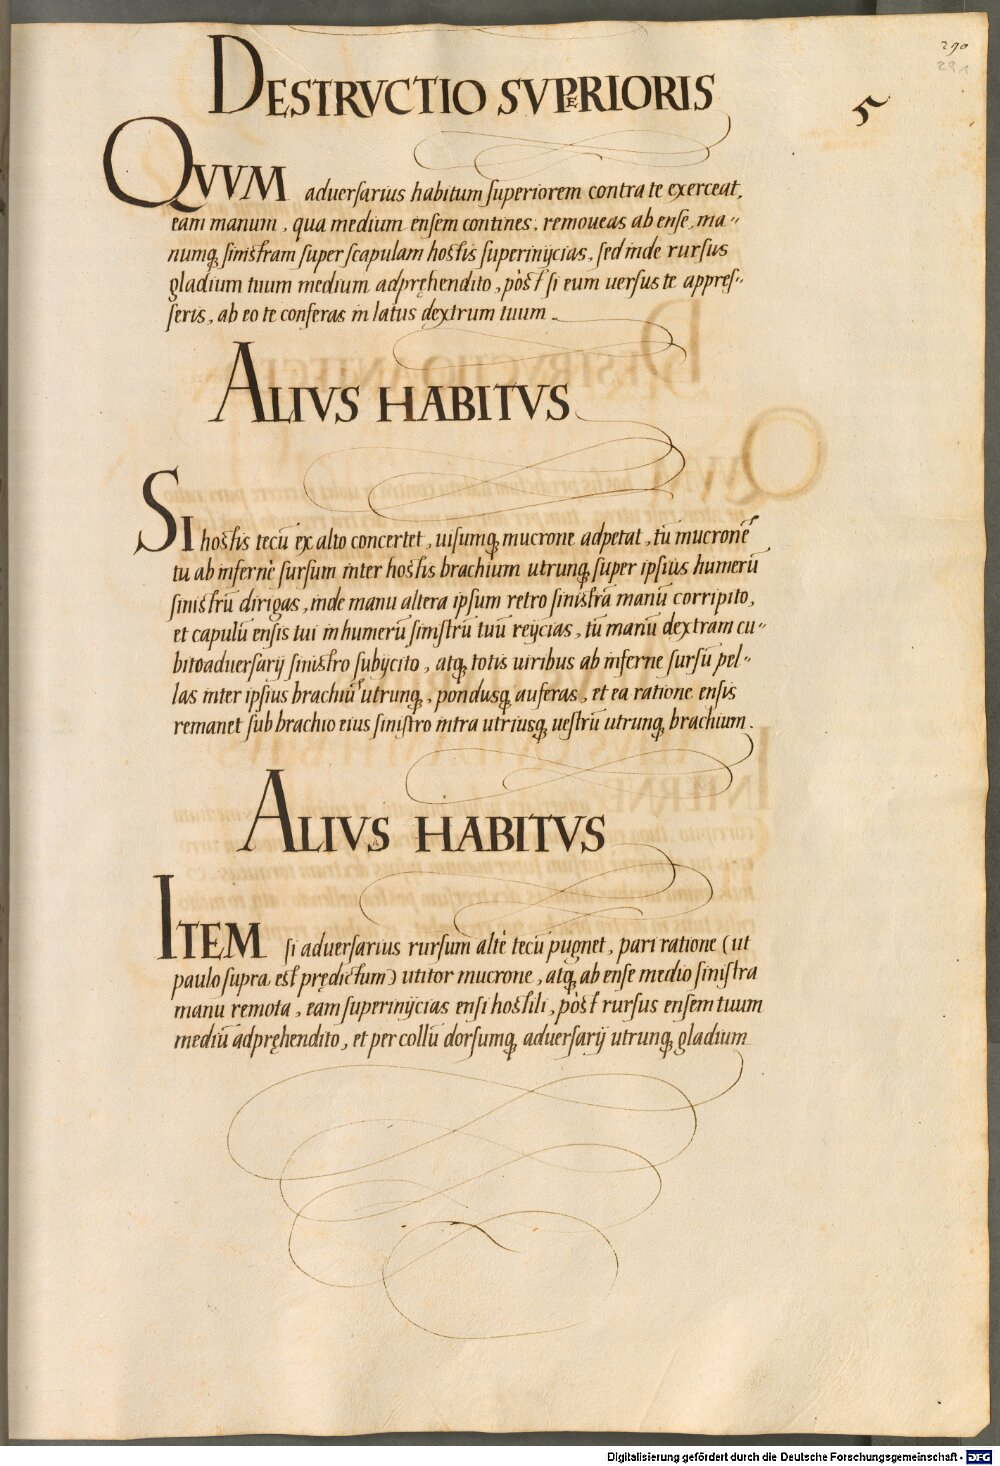 290
291
5
DESTRVCTIO SVPERIORIS
QVVM aduersarius habitum superiorem contra te exerceat,
eam manum, qua medium ensem contines, remoueas ab ense, ma„
numq̨ sinistram super scapulam hostis superinijcias, sed inde rursus
gladium tuum medium adpręhendito, pòst si eum uersus te appres„
seris, ab eo te conferas in latus dextrum tuum.
ALIVS HABITVS
SI hostis tecū ex alto concertet, uisumq̨ mucrone adpetat, tū mucronē
tu ab infernè sursum inter hostis brachium utrunq̨ super ipsius humerū
sinistrū dirigas, inde manu altera ipsum retro sinistrā manū corripito,
et capulū ensis tui in humerū sinistrū tuū reijcias, tū manū dextram cu„
bito aduersarij sinistro subijcito, atq̨ totis uiribus ab inferne sursū pel„
las inter ipsius brachiū utrunq̨, pondusq̨ auferas, et ea ratione ensis
remanet sub brachio eius sinistro intra utriusq̨ uestrū utrunq̨ brachium.
ALIVS HABITVS
ITEM si aduersarius rursum altè tecū pugnet, pari ratione (ut
paulo supra est prędictum) utitor mucrone, atq̨ ab ense medio sinistra
manu remota, eam superinijcias ensi hostili, pòst rursus ensem tuum
mediū adpręhendito, et per collū dorsumq̨ aduersarij utrunq̨ gladium
Digitalisierung gefördert durch die Deutsche Forschungsgemeinschaft - DFG